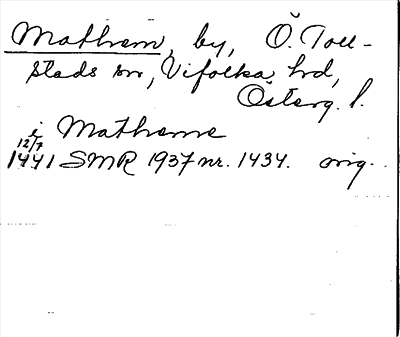 Mathem, by, Ö. Toll-
stads sn, Vifolka hd,
Österg. l.
i Matheme
12/7
1441 SMR 1937 nr. 1434. orig.